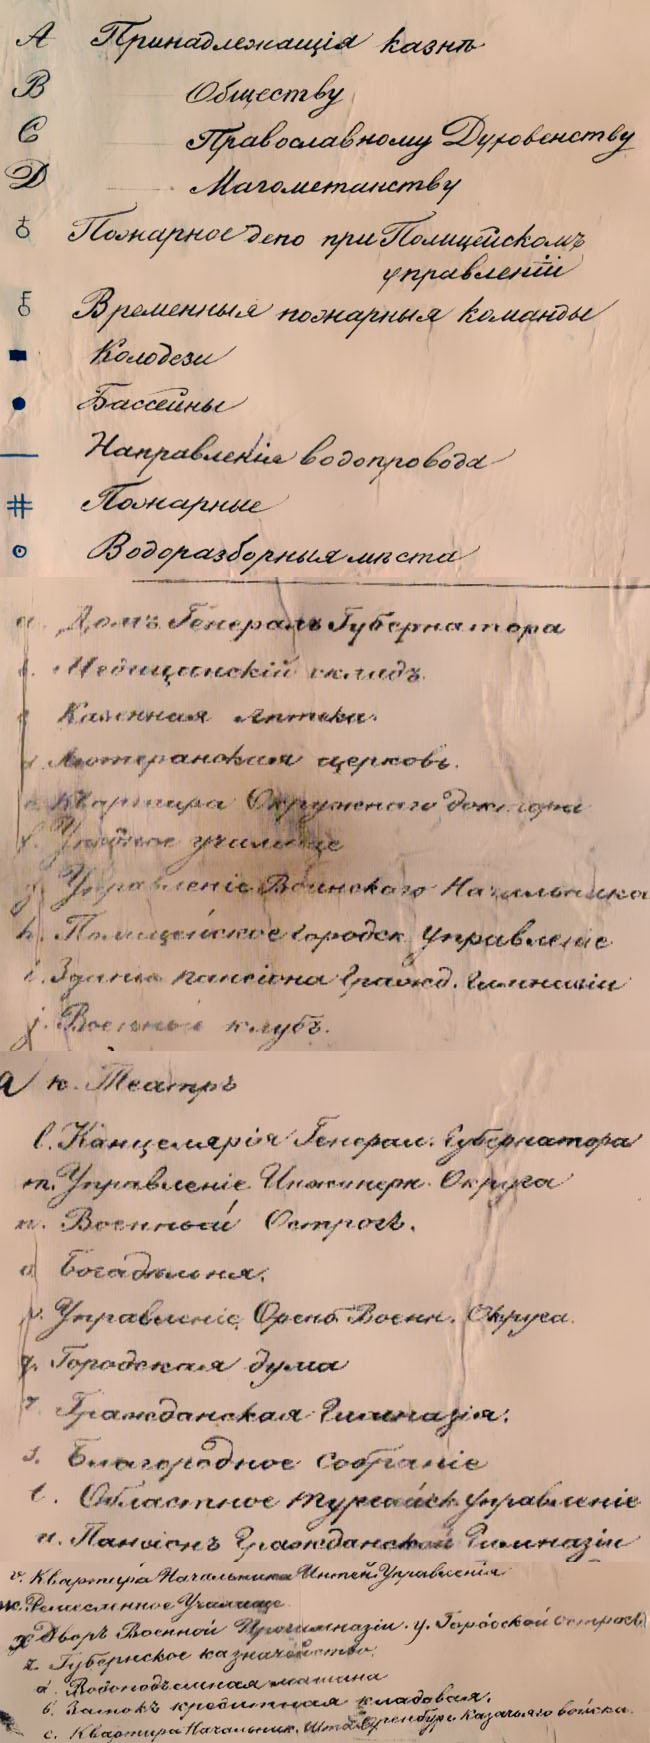 A Принадлежащія казнѣ
B Обществу
C Православному Духовенству
D Магометанству
Пожарное депо при Полицейскомъ
управленіи
Временныя пожарныя команды
Колодези
Бассейны
Направленіе водопровода
Пожарные
Водоразборныя мѣста
a. Домъ Генералъ Губернатора
Медицинскій складъ.
Казенная Аптека.
d. Лютеранская церковь.
Квартира Окружнаго доктора
f. училище
g. Управленіе Воинскаго Начальника
h. Полицейское городск. управленіе
i. Зданіе пансіона Гражд. Гимназіи
j. Военный клубъ.
к. Театръ
l. Канцелярія Генерал. Губернатора
m. Управленіе Инженерн. Округа
n. Военный Острогъ.
o Богадѣльня.
p. Управленіе Оренб. Военн. Округа.
q. Городская дума
r. Гражданская Гимназія.
s. Благородное собраніе
t. Областное тургайск. управленіе
u. Пансіонъ Гражданской Гимназіи
v. Квартира Начальника Интен. Управленія
Ремесленное Училище
x Дворъ Военной Прогимназіи. y. Городской острогъ
z. Губернское казначейство.
a. Водоподъемная машина
b. Замокъ кредитная кладовая.
c. Квартира Начальник. Штаба Оренбург. Казачьяго войска.